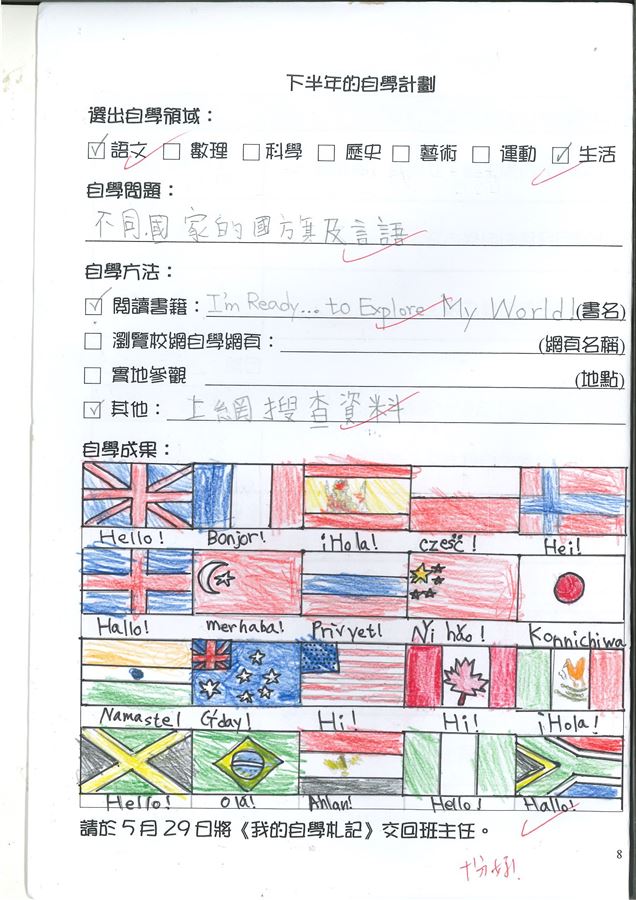 下半年的自學計劃
選出自學領域：
☑ 語文 □ 數理 □ 科學 □ 歷史 □ 藝術 □ 運動 ☑ 生活
自學問題：
不同國家的國方旗及言語
自學方法：
☑ 閱讀書籍：I'm Ready... to Explore My World! (書名)
□ 瀏覽校網自學網頁： (網頁名稱)
□ 實地參觀 (地點)
☑ 其他：上網搜查資料
自學成果：
Hello! Bonjor! ¡Hola! cześć! Hei!
Hallo! merhaba! Privyet! Nǐ hǎo! Konnichiwa
Namaste! G'day! Hi! Hi! ¡Hola!
Hello! Olá! Ahlan! Hello! Hallo!
請於5月29日將《我的自學札記》交回班主任。
8
十分好!